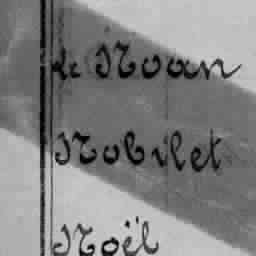 de Noan
Nobilet
Noël